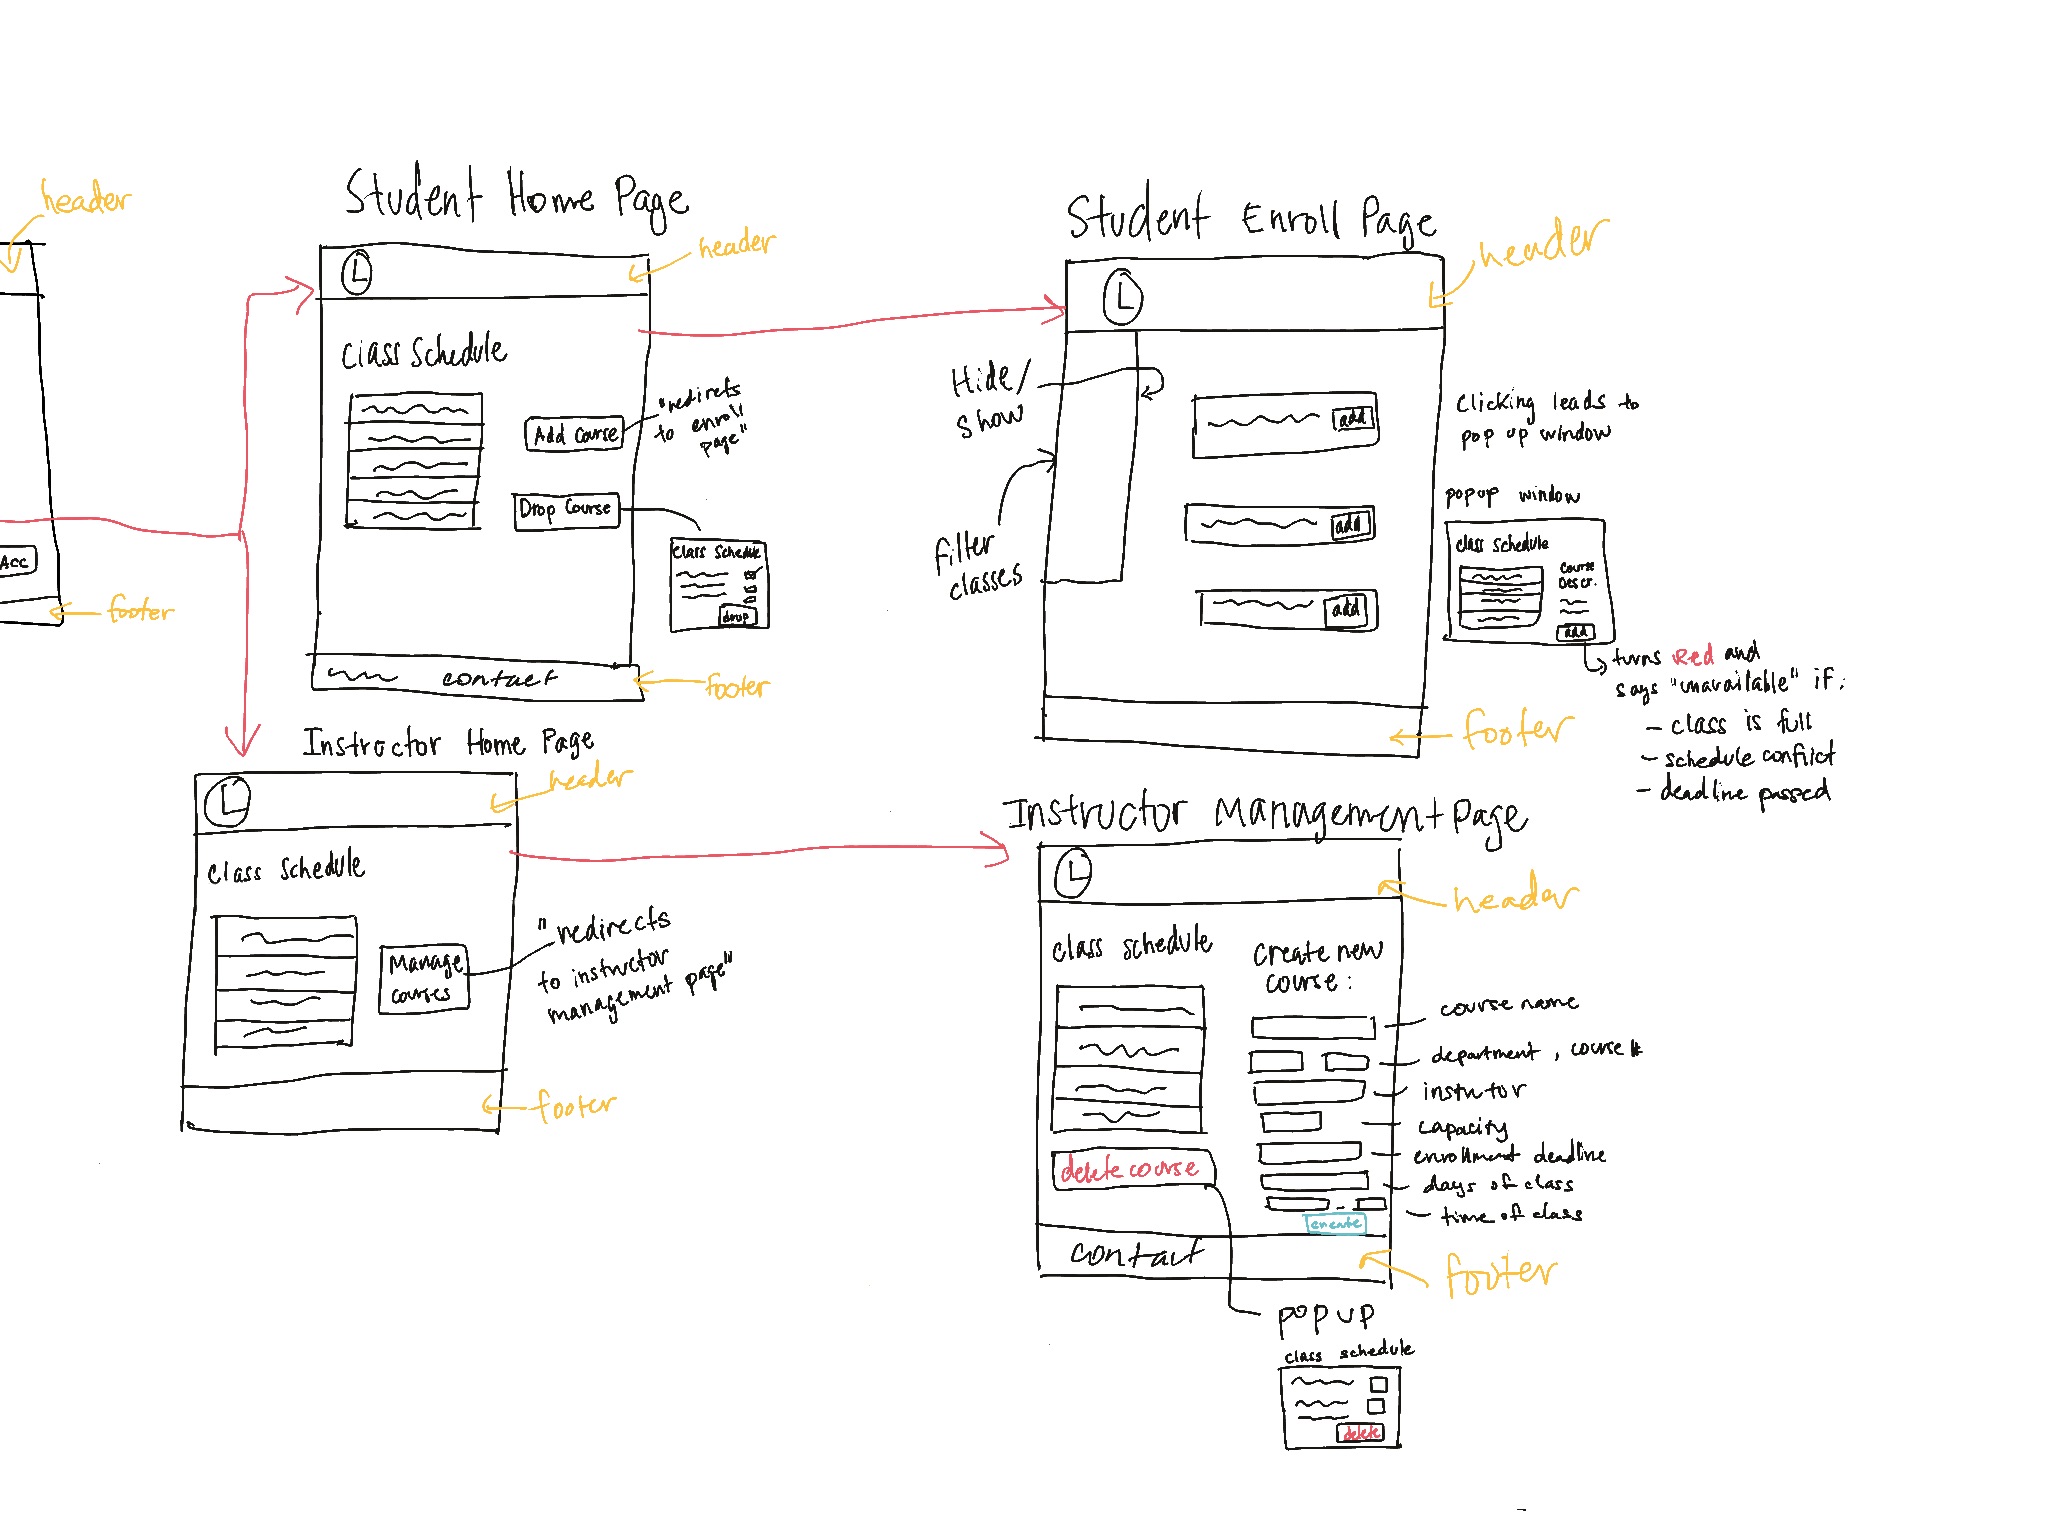 header
Acc
footer
Student Home Page
header
L
Class Schedule
Add Course
"redirets
to enroll
page"
Drop Course
Class Schedule
drop
contact
footer
Student Enroll Page
header
L
Hide/
show
filter
classes
add
add
add
Clicking leads to
pop up window
popup window
class schedule
Course
Descr.
add
turns Red and
says "unavailable" if:
- class is full
- schedule conflict
- deadline passed
footer
Instructor Home Page
header
L
Class Schedule
Manage
courses
"redirects
to instructor
management page"
footer
Instructor Management Page
header
L
class schedule
create new
course:
course name
department, course #
instrutor
capacity
enrollment deadline
days of class
- time of class
create
delete course
contact
footer
pop up
class schedule
delete